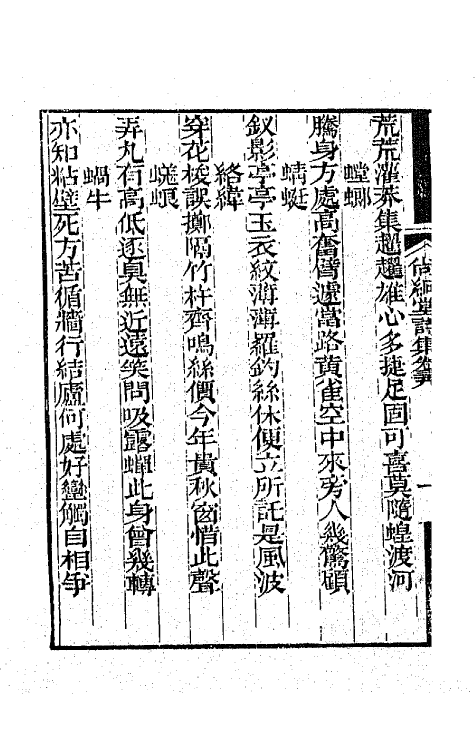 尚絅堂詩集卷
荒荒灌莽集趯趯雄心多捷足固可喜莫隨蝗渡河
螳螂
騰身方處高奮臂遽當路黃雀空中來旁人幾驚顧
蜻蜓
釵影亭亭玉衣紋薄薄羅釣絲休便立所託是風波
絡緯
穿花梭誤擲隔竹杼齊鳴絲價今年貴秋窗惜此聲
蜣蜋
弄丸有高低逐臭無近遠笑問吸露蟬此身曾幾轉
蝸牛
亦知粘壁死方苦循牆行結廬何處好蠻觸自相爭